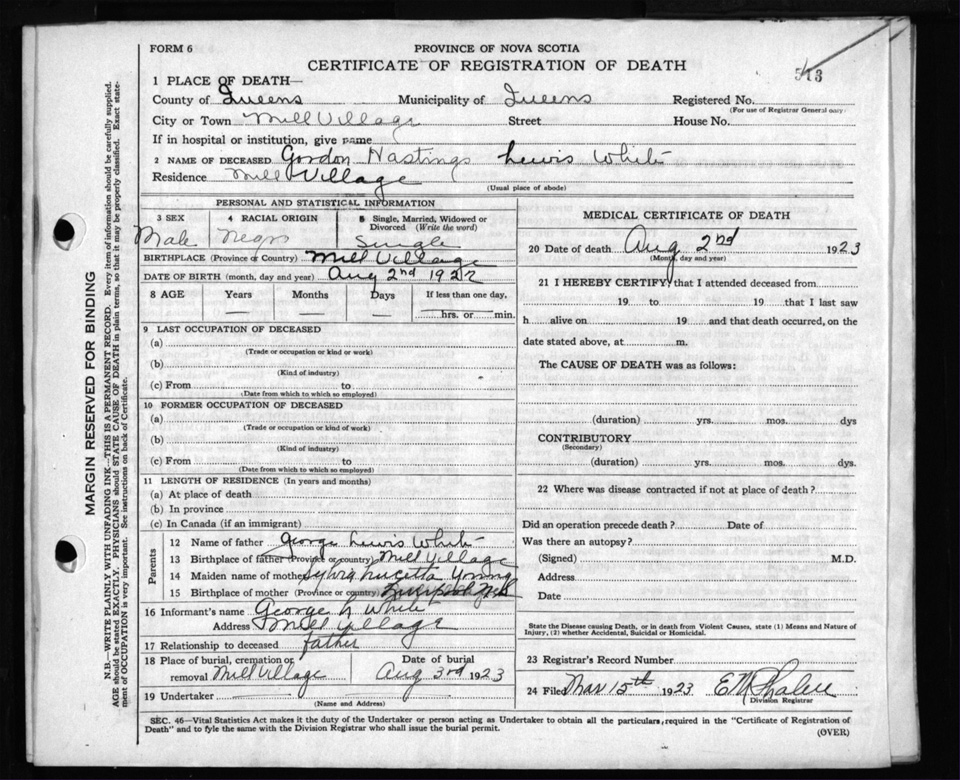 FORM 6
PROVINCE OF NOVA SCOTIA
CERTIFICATE OF REGISTRATION OF DEATH
513
1 PLACE OF DEATH—
County of Queens Municipality of Queens Registered No.
(For use of Registrar General only)
City or Town Mill Village Street House No.
If in hospital or institution, give name
2 NAME OF DECEASED Gordon Hastings Lewis White
Residence Mill Village
(Usual place of abode)
PERSONAL AND STATISTICAL INFORMATION
3 SEX 4 RACIAL ORIGIN 5 Single, Married, Widowed or Divorced (Write the word)
Male Negro Single
BIRTHPLACE (Province or Country) Mill Village
DATE OF BIRTH (month, day and year) Aug 2nd 1922
8 AGE Years Months Days If less than one day,
— — — hrs. or min.
9 LAST OCCUPATION OF DECEASED
(a)
(Trade or occupation or kind or work)
(b)
(Kind of industry)
(c) From to
(Date from which to which so employed)
10 FORMER OCCUPATION OF DECEASED
(a)
(Trade or occupation or kind of work)
(b)
(Kind of industry)
(c) From to
(Date from which to which so employed)
11 LENGTH OF RESIDENCE (In years and months)
(a) At place of death
(b) In province
(c) In Canada (if an immigrant)
Parents
12 Name of father George Lewis White
13 Birthplace of father (Province or country) Mill Village
14 Maiden name of mother Young
15 Birthplace of mother (Province or country) Liverpool N.S
16 Informant's name George L White
Address Mill Village
17 Relationship to deceased father
18 Place of burial, cremation or removal Mill Village
Date of burial
Aug 3rd 1923
19 Undertaker
(Name and Address)
MEDICAL CERTIFICATE OF DEATH
20 Date of death Aug 2nd 1923
(Month, day and year)
21 I HEREBY CERTIFY, that I attended deceased from
19 to 19 that I last saw
h alive on 19 and that death occurred, on the
date stated above, at m.
The CAUSE OF DEATH was as follows:
(duration) yrs. mos. dys
CONTRIBUTORY
(Secondary)
(duration) yrs. mos. dys.
22 Where was disease contracted if not at place of death?
Did an operation precede death? Date of
Was there an autopsy?
(Signed) M.D.
Address
Date
State the Disease causing Death, or in death from Violent Causes, state (1) Means and Nature of
Injury, (2) whether Accidental, Suicidal or Homicidal.
23 Registrar's Record Number
24 Filed Mar 15th 1923
Division Registrar
SEC. 46—Vital Statistics Act makes it the duty of the Undertaker or person acting as Undertaker to obtain all the particulars, required in the "Certificate of Registration of
Death" and to fyle the same with the Division Registrar who shall issue the burial permit.
(OVER)
MARGIN RESERVED FOR BINDING
N.B.—WRITE PLAINLY WITH UNFADING INK—THIS IS A PERMANENT RECORD. Every item of information should be carefully supplied.
AGE should be stated EXACTLY. PHYSICIANS should STATE CAUSE OF DEATH in plain terms, so that it may be properly classified. Exact state-
ment of OCCUPATION is very important. See instructions on back of Certificate.